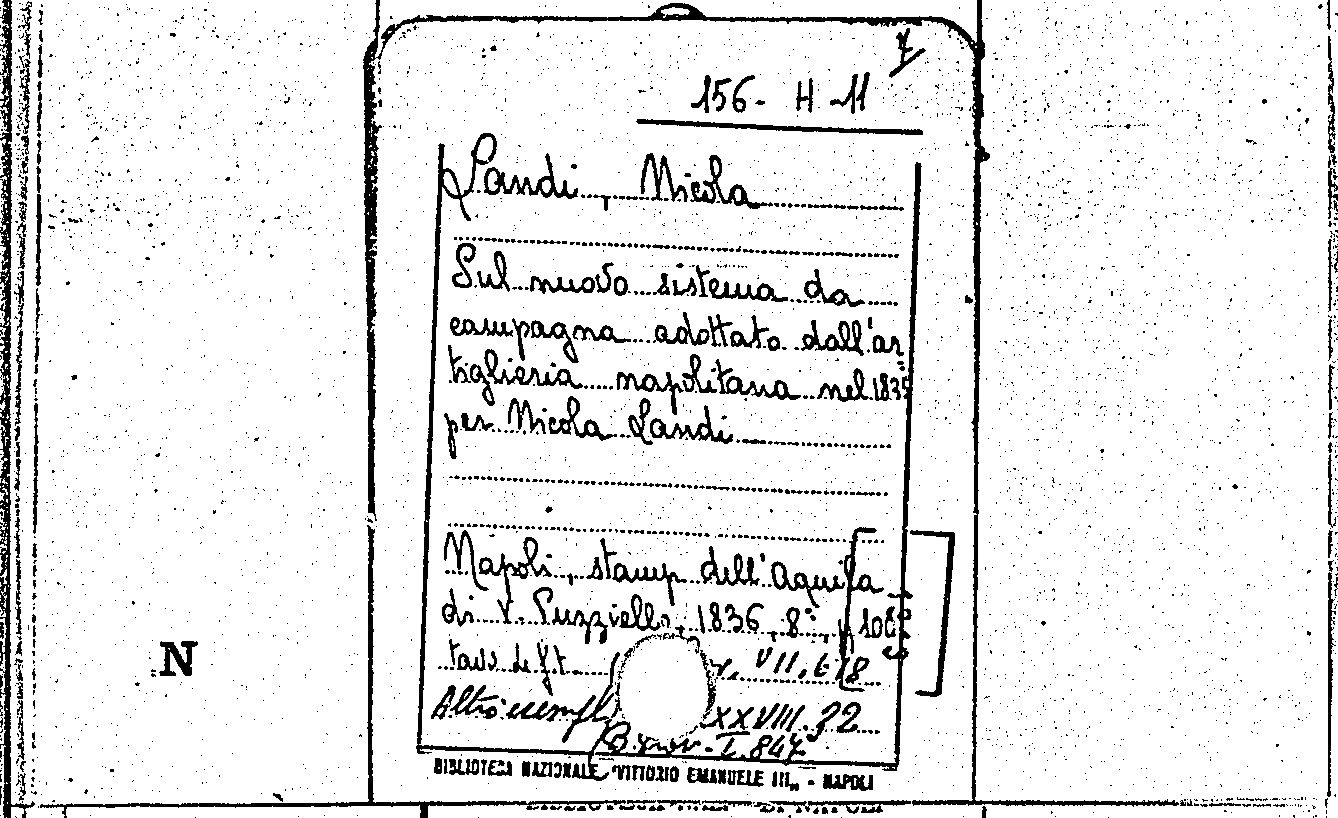 7
156- H -11
Landi, Nicola
Sul nuovo sistema da
campagna adottato dall'ar
tiglieria napolitana nel 1835
per Nicola Landi
Napoli, stamp dell'Aquila
di V. Puzziello, 1836, 8°, p 108
VII. 618
N
Altro esempl XXVIII. 32
I. 847
BIBLIOTECA NAZIONALE "VITTORIO EMANUELE III„ - NAPOLI